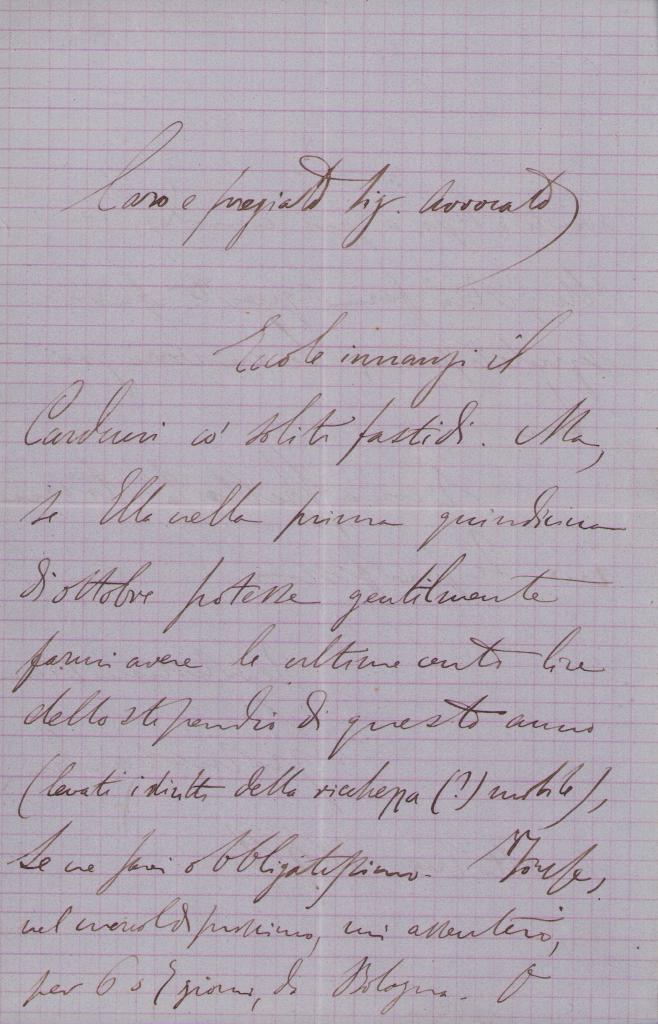 Caro e pregiato Sig. Avvocato
Eccole innanzi il
Carducci co' soliti fastidi. Ma,
se Ella nella prima quindicina
di ottobre potesse gentilmente
farmi avere le ultime cento lire
dello stipendio di questo anno
(levati i diritti della ricchezza (?) mobile),
Le ne sarei obbligatissimo. Forse,
nel mercoldì prossimo, mi assenterò,
per 6 o 7 giorni, da Bologna. O